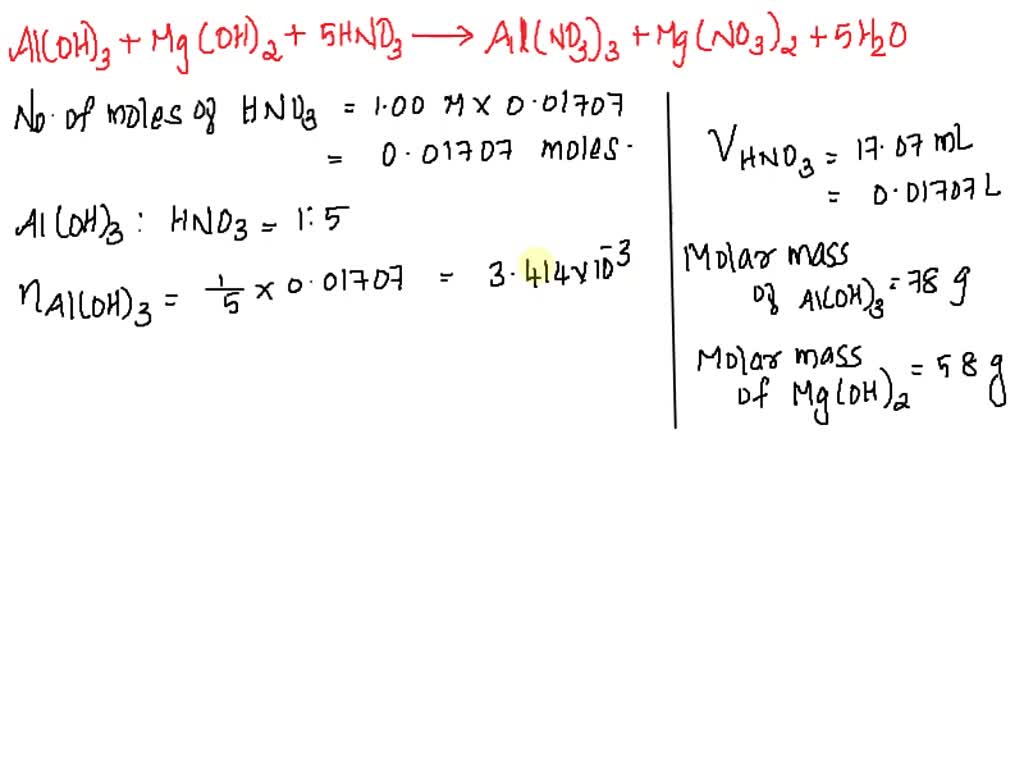 Al(OH)₃ + Mg(OH)₂ + 5HNO₃ → Al(NO₃)₃ + Mg(NO₃)₂ + 5H₂O
No. of moles of HNO₃ = 1.00 M × 0.01707
= 0.01707 moles.
Al(OH)₃ : HNO₃ = 1:5
nAl(OH)₃ = 1/5 × 0.01707 = 3.414×10⁻³
VHNO₃ = 17.07 mL
= 0.01707 L
Molar mass
of Al(OH)₃ = 78 g
Molar mass
of Mg(OH)₂ = 58 g